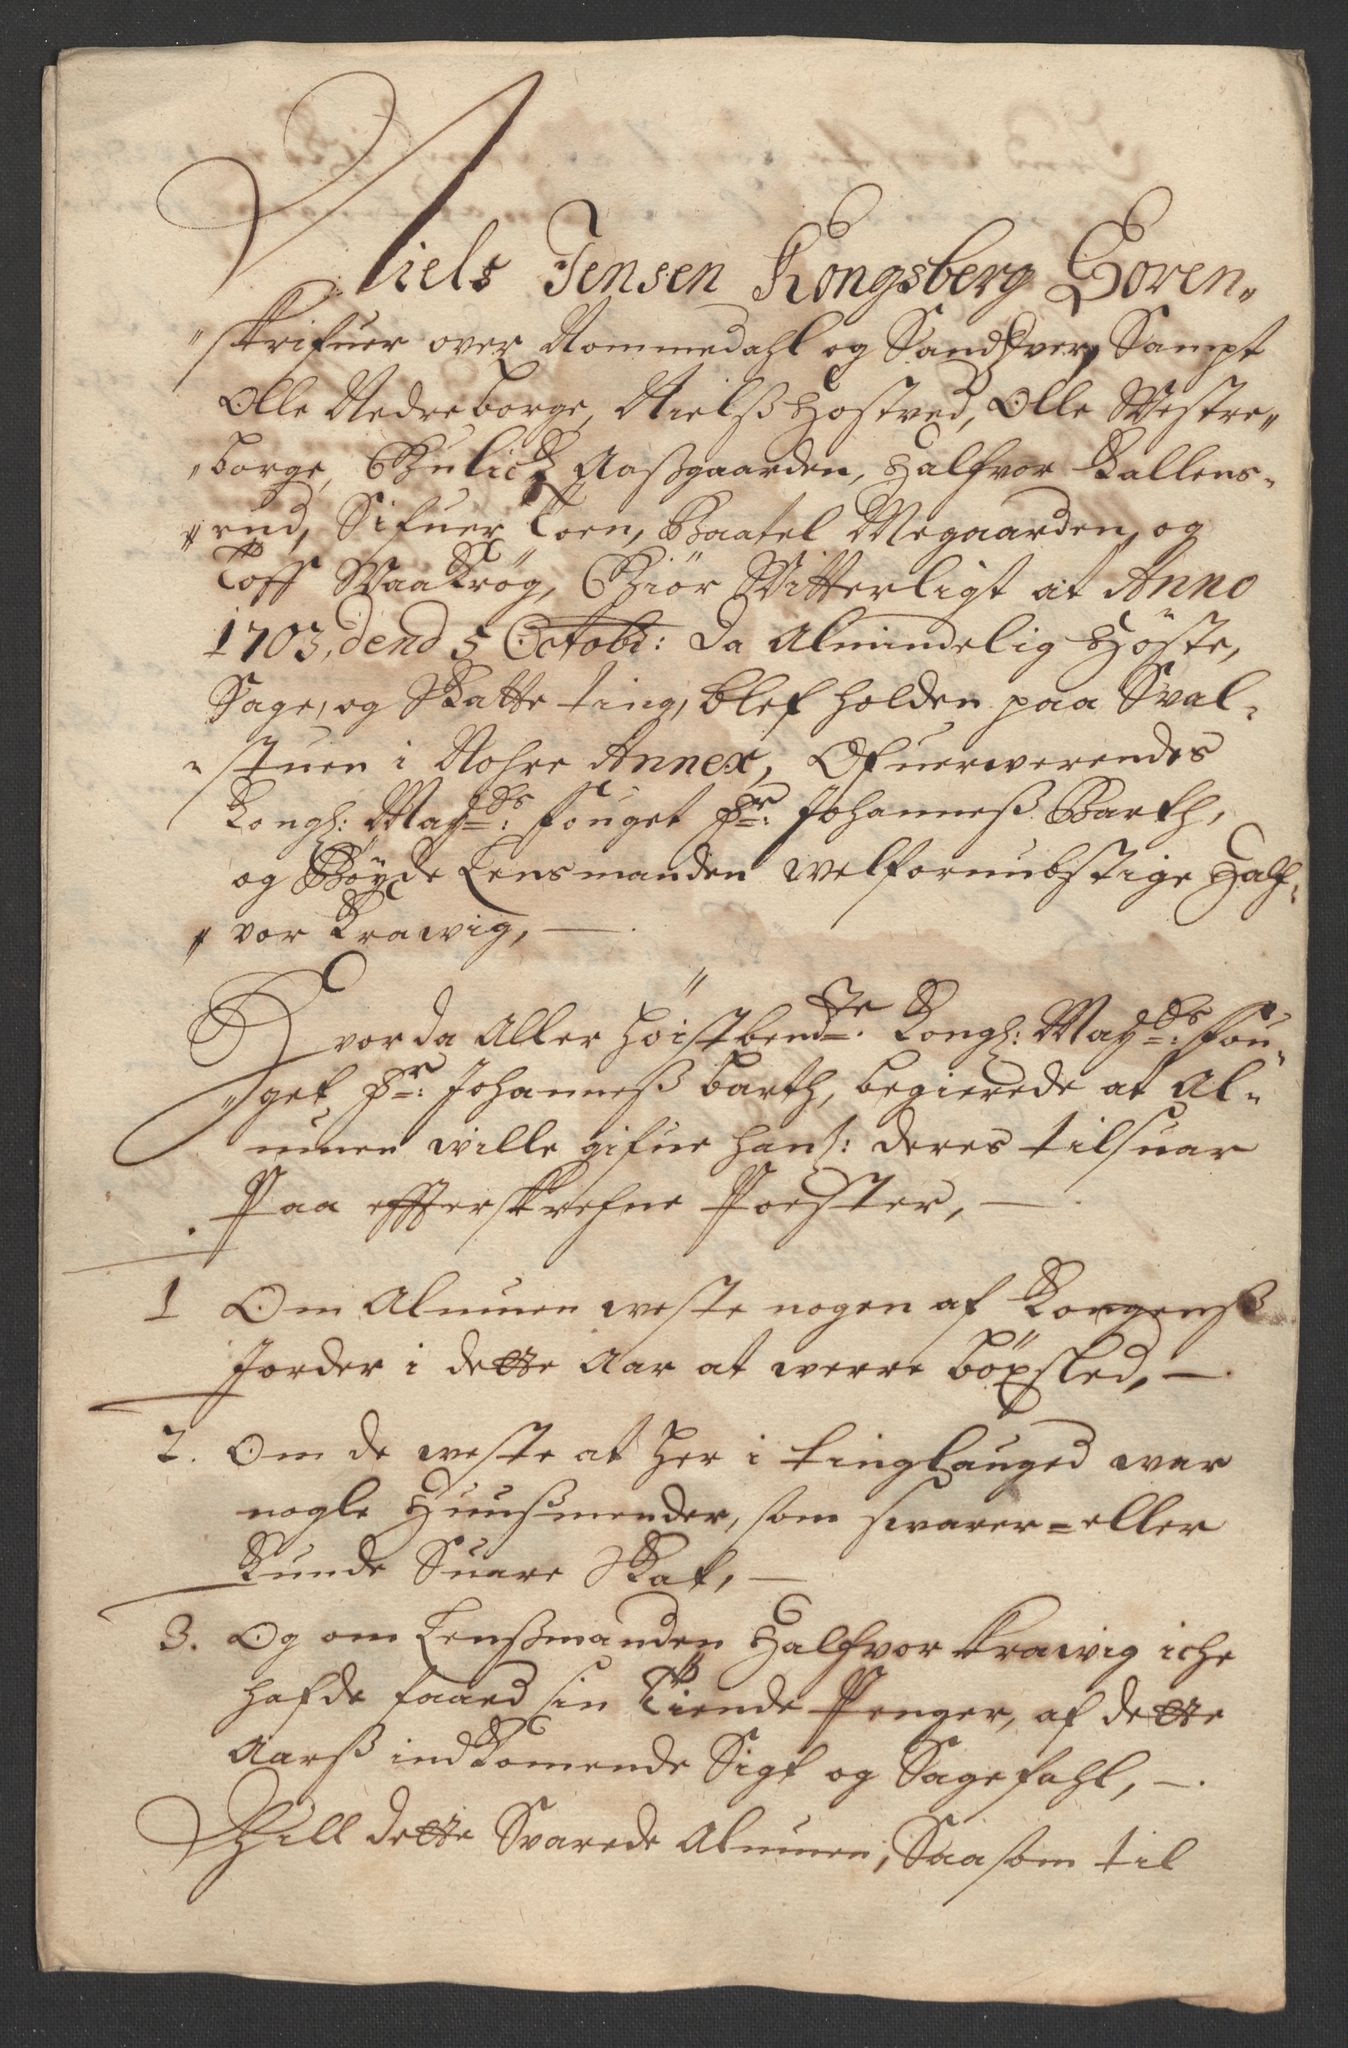 Niels Jensen Kongsberg Soren„
„skrifuer over Nommedahl og Sandsver, Sampt
Olle Nedreborge, Nielß Hostved, Olle Westre„
„borge, Gulich Aaßgaarden, Halfvor Kallens-
„rud, Sifuer Toen, Baatel Megaarden, og
Toff Waakrøg, Giör Witterligt at Anno
1703, dend 5 Octobr: da Almindelig Höste,
Sage, og Skatte ting, blef holden paa Sval„
„stuen i Nohre Annex, Ofuerwerendes
Kongl: Mayds: fouget Hr: Johanneß Barth,
og Böyde Lensmanden welfornubstige Half„
„vor Krawig, —.
Hvor da Aller Höistbemdte. Kongl: Mayds: Fou„
„get Hr: Johanneß Barth, begierede at Al„
muen wille gifue hanß: deres tilsuar
Paa effterskrefne Poster, —.
1 Om Almuen weste nogen af Kongenß
Jorder i dette Aar at werre böxsled, —.
2. Om de weste at her i tinglauged war
nogle Huußmender, som swarer=eller
Kunde Suare Skat, —
3. Og om Lenßmanden Halfvor Krawig iche
hafde faaed sin Tiende Penger, af dette
Aarß indkomende Sigt og Sagefahl, —.
Till dette Svarede Almuen, Saasom til